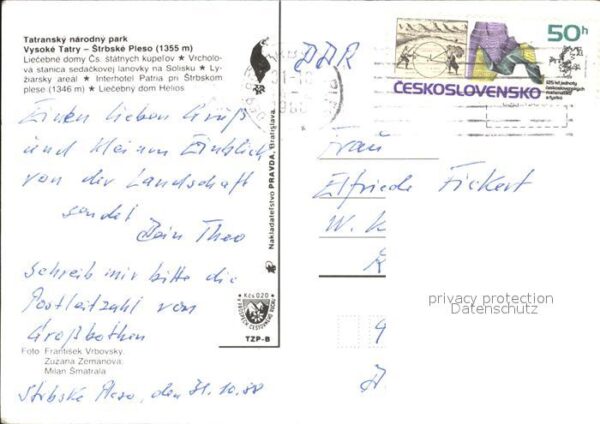 Tatranský národný park
Vysoké Tatry – Štrbské Pleso (1355 m)
Liečebné domy Čs. štátnych kúpeľov ★ Vrcholo-
vá stanica sedačkovej lanovky na Solisku ★ Ly-
žiarsky areál ★ Interhotel Patria pri Štrbskom
plese (1346 m) ★ Liečebný dom Helios
Einen lieben Gruß
und kleinen Einblick
von der Landschaft
sendet
Dein Theo
Schreib mir bitte die
Postleitzahl von
Großbothen
Foto František Vrbovský,
Zuzana Zemanová,
Milan Šmatrala
Štrbské Pleso, den 31.10.88
Nakladateľstvo PRAVDA, Bratislava
Kčs 0,20
TZP-B
DDR
50h
ČESKOSLOVENSKO
125 let jednoty
československých
matematiků
a fyziků
Frau
Elfriede Fickert
W. K
privacy protection
Datenschutz